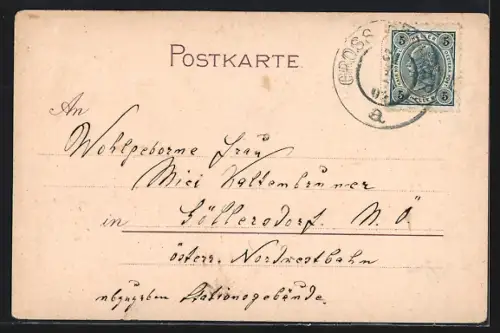 POSTKARTE.
GROSS
a
5 5
5 5
An
Wohlgeborne Frau
Mici Kaltenbrunner
in Göllersdorf. N. Ö.
österr. Nordwestbahn
abzugeben Stationsgebäude.